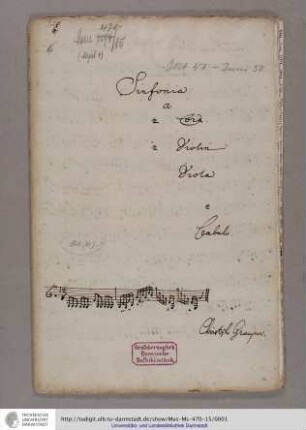 6
Oct 47 - Juni 50
Sinfonia
a
2 Corn
2 Violin
Viola
e
Cembalo
Christoph Graupner.
Grossherzoglich
Hessische
Hofbibliothek
TECHNISCHE
UNIVERSITÄT
DARMSTADT
http://tudigit.ulb.tu-darmstadt.de/show/Mus-Ms-470-15/0001
Universitäts- und Landesbibliothek Darmstadt